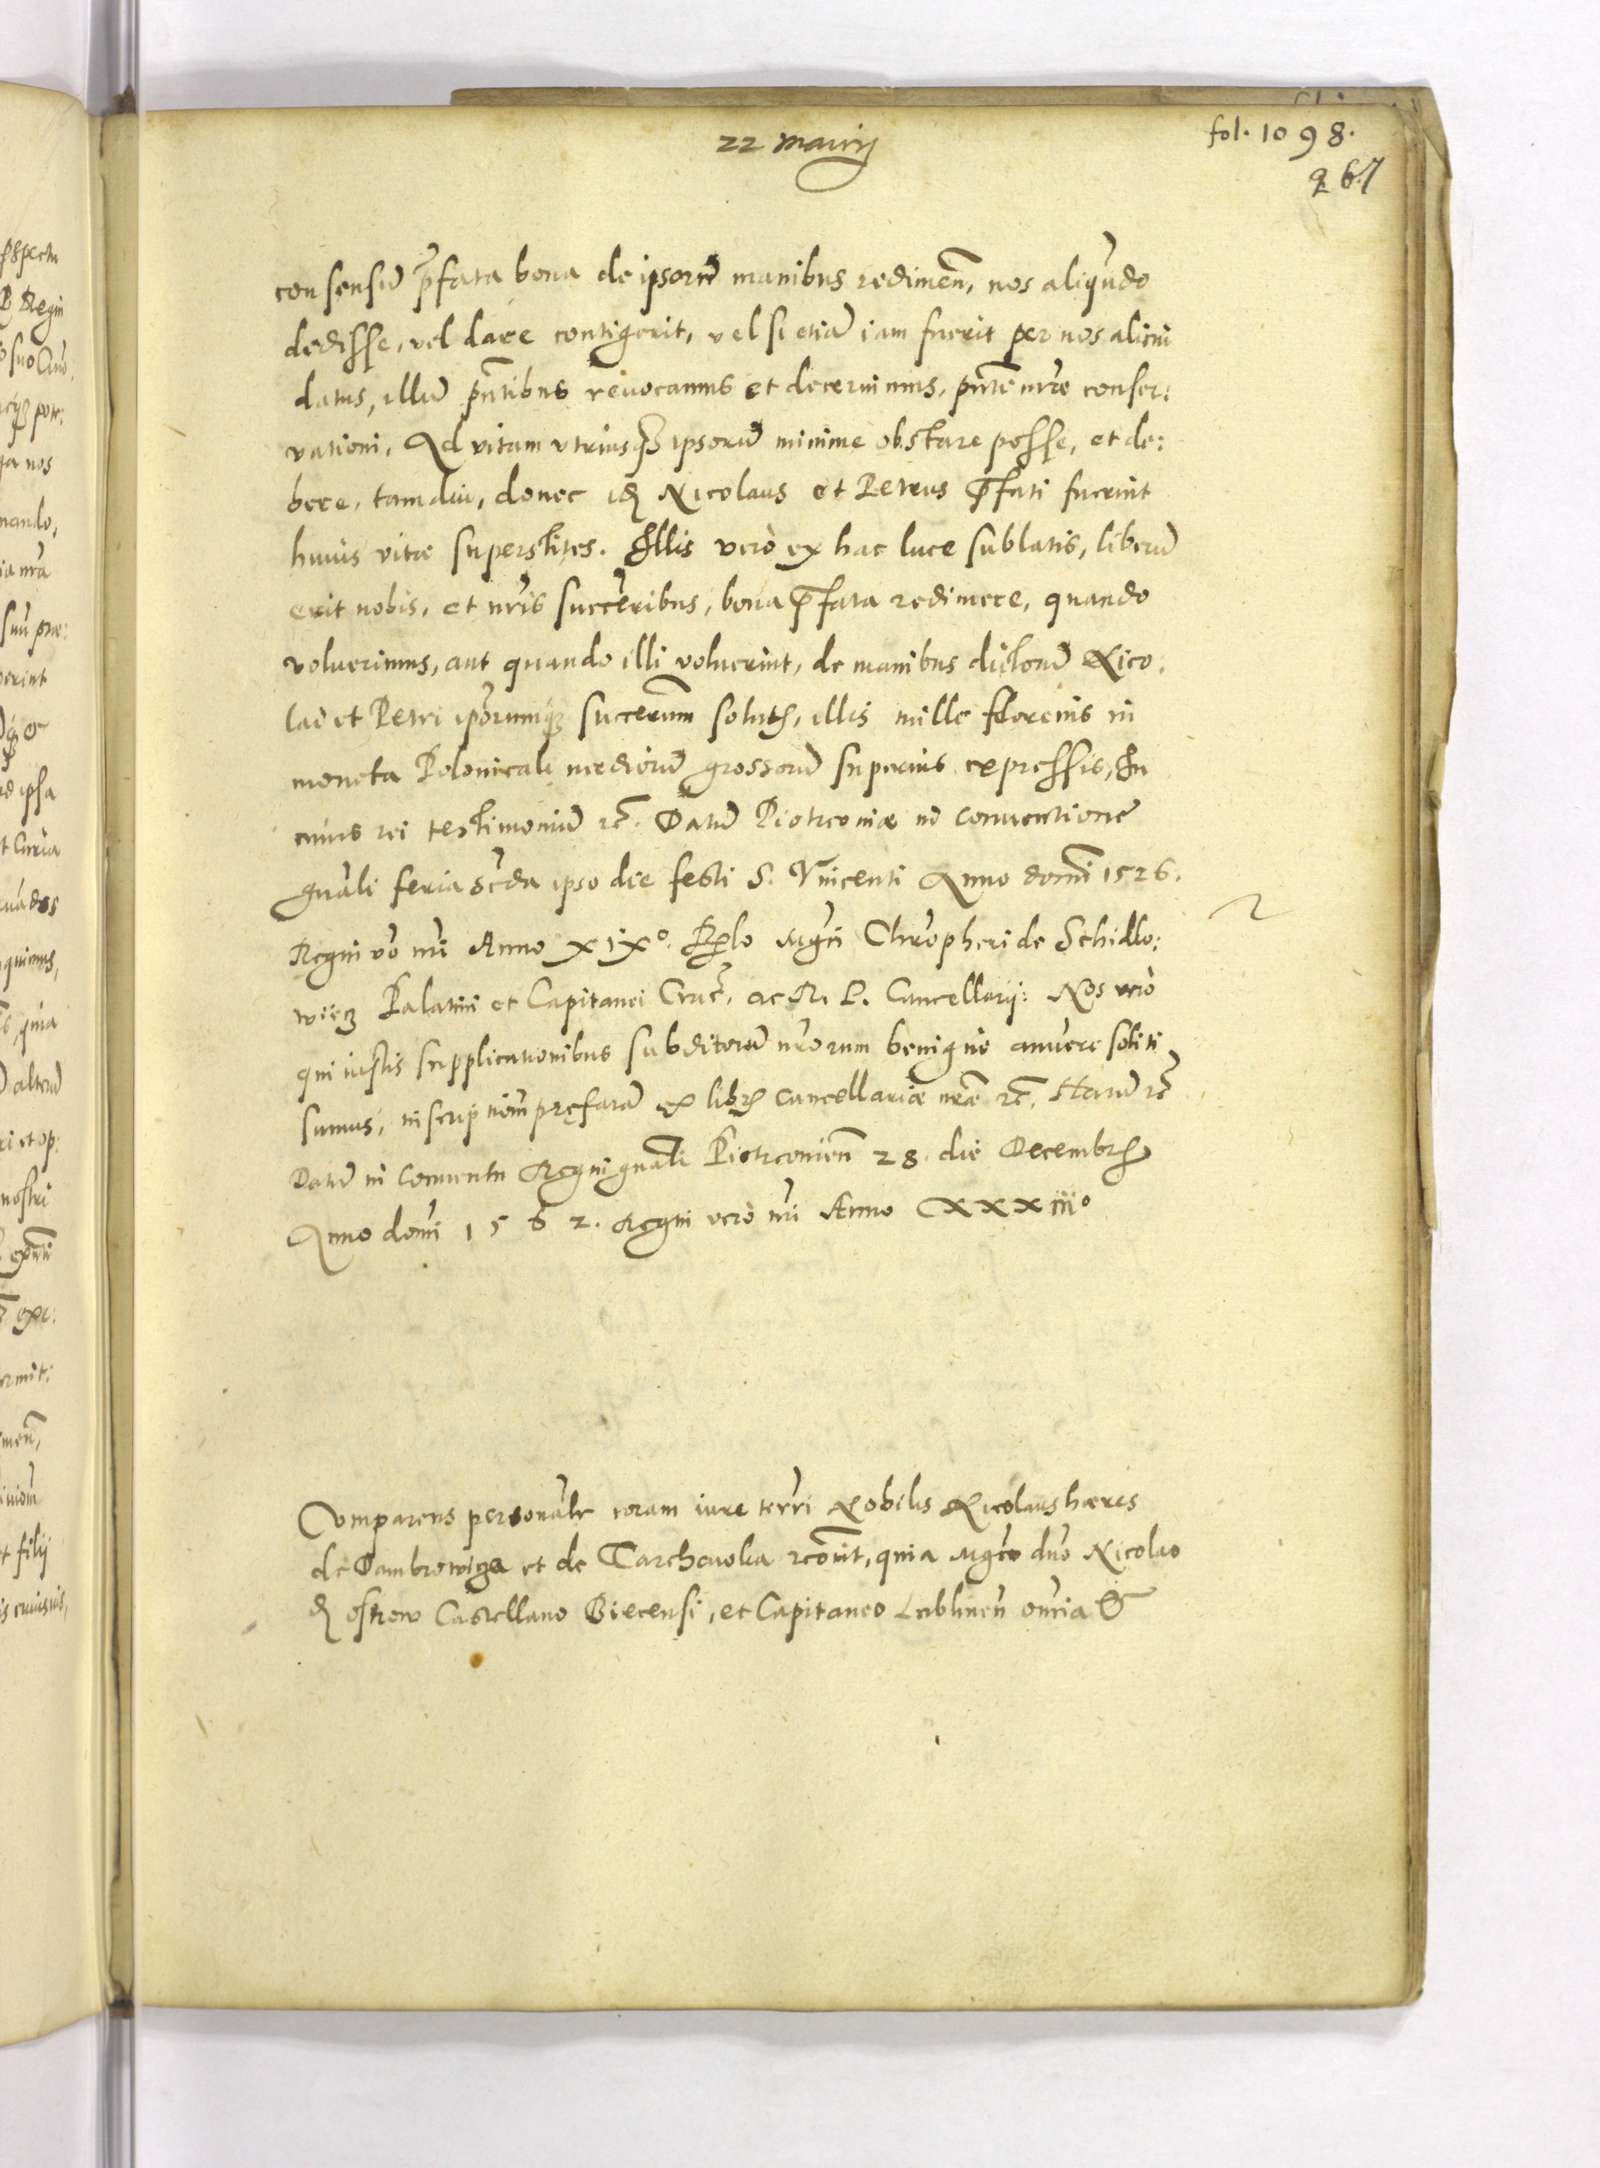 22 maiiy
fol. 1098.
267
consensũ p̃fata bona de ipsorũ manibus redimeñ, nos aliqũdo
dedisse, vel dare contigerit, vel si etiã iam fuerit per nos alicui
datus, illũ pñtibus reuocamus et decernimus, pñte nr̃e conser:
vationi, Ad vitam vtriusqȝ ipsorũ minime obstare posse, et de:
bere, tamdiu, donec Nicolaus et Petrus p̃fati fuerint
huius vitæ superstites. Illis vero ex hac luce sublatis, liberũ
erit nobis, et nr̃is succẽribus, bona p̃fata redimere, quando
voluerimus, aut quando illi voluerint, de manibus dictorũ Nico:
lai et Petri ip̃orumqȝ succerum̃ solut, illis mille florenis in
moneta Polonicali mediorũ grossorũ superius expressis, In
cuius rei testimoniũ rc̃. Datũ Piotrconiæ in conuentione
gñali feria sc̃da ipso die festi S. Vincenti Anno domĩ 1526.
Regni vo nr̃i Anno XIXº. Mgc̃i Chr̃opheri de Schidlo:
wiecz Palatini et Capitanei Crac̃. ac R. P. Cancellarij: Nos vero
qui iustis supplicationibus subditorũ nr̃orum benigne anuere soliti
sumus, inscriptionem̃ pręfatã ex libr cancellariæ nr̃æ rc̃. Harũ rc̃
Datũ in Conuentu Regni gñali Piotrconieñ 28. die Decembr
Anno domĩ 1562. Regni vero nr̃i Anno XXXiiiº
Comparens personal̃r coram iure terr̃i Nobilis Nicolaus hæres
de Dambrowicza et de Tarchowka rc̃onit, quia Mgc̃o dño Nicolao
ostrow Castellano Biecensi, et Capitaneo Lublineñ om̃ia &